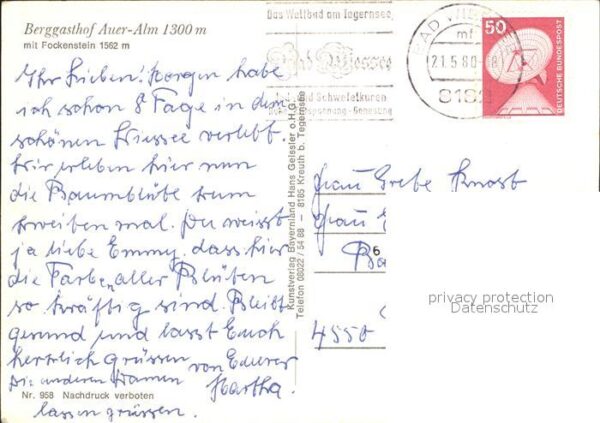 Berggasthof Auer-Alm 1300 m
mit Fockenstein 1562 m
Ihr Lieben! Morgen habe
ich schon 8 Tage in dem
schönen Wiessee verlebt
Wir erleben hier nun
die Baumblüte zum
zweiten mal. Du weisst
ja liebe Emmy, dass hier
die Farben aller Blüten
so kräftig sind. Bleibt
gesund und lasst Euch
herzlich grüssen von Eurer
Martha.
Die anderen Damen
lassen grüssen.
Nr. 958 Nachdruck verboten
Kunstverlag Bayernland Hans Geissler o.H.G.
Telefon 08022 / 54 88 — 8185 Kreuth b. Tegernsee
Das Weltbad am Tegernsee
Bad Wiessee
Schwefelkuren
Entspannung - Genesung
BAD WIESSEE
mf
21.5.80-8
8182
50
DEUTSCHE BUNDESPOST
Frau Grete Knost
Frau
6
4550
privacy protection
Datenschutz